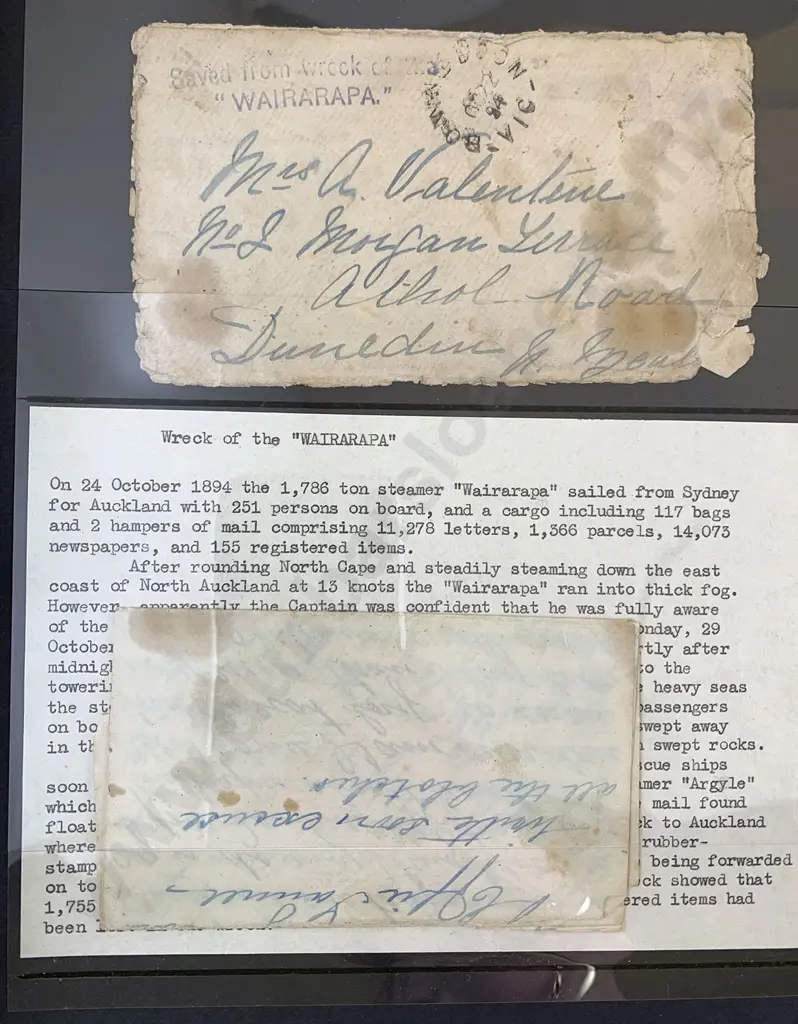 Saved from wreck of the
"WAIRARAPA."
Mrs A. Valentine
No 2 Morgan Terrace
Athol Road
Dunedin N. Zeal
Wreck of the "WAIRARAPA"
On 24 October 1894 the 1,786 ton steamer "Wairarapa" sailed from Sydney
for Auckland with 251 persons on board, and a cargo including 117 bags
and 2 hampers of mail comprising 11,278 letters, 1,366 parcels, 14,073
newspapers, and 155 registered items.
After rounding North Cape and steadily steaming down the east
coast of North Auckland at 13 knots the "Wairarapa" ran into thick fog.
However, apparently the Captain was confident that he was fully aware
of the onday, 29
October rtly after
midnigh to the
towerin heavy seas
the st passengers
on bo swept away
in th swept rocks.
scue ships
soon mer "Argyle"
which mail found
float k to Auckland
where rubber-
stamp being forwarded
on to ck showed that
1,755 ered items had
been
all the blotches
write soon excuse
Effie